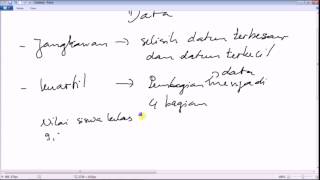 Data
- Jangkauan → selisih datum terbesar
dan datum terkecil
- kuartil → Pembagian data menjadi
4 bagian
Nilai siswa kelas
9,